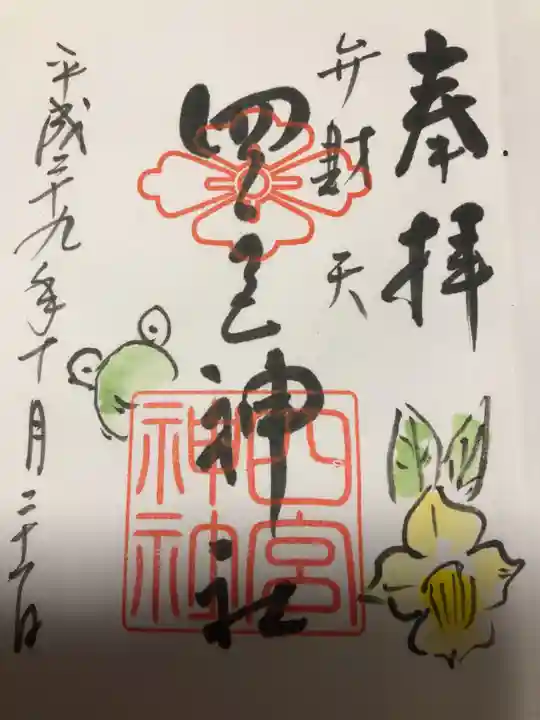 奉拝
弁財天
四宮神社
四宮神社
平成二十九年十月二十一日